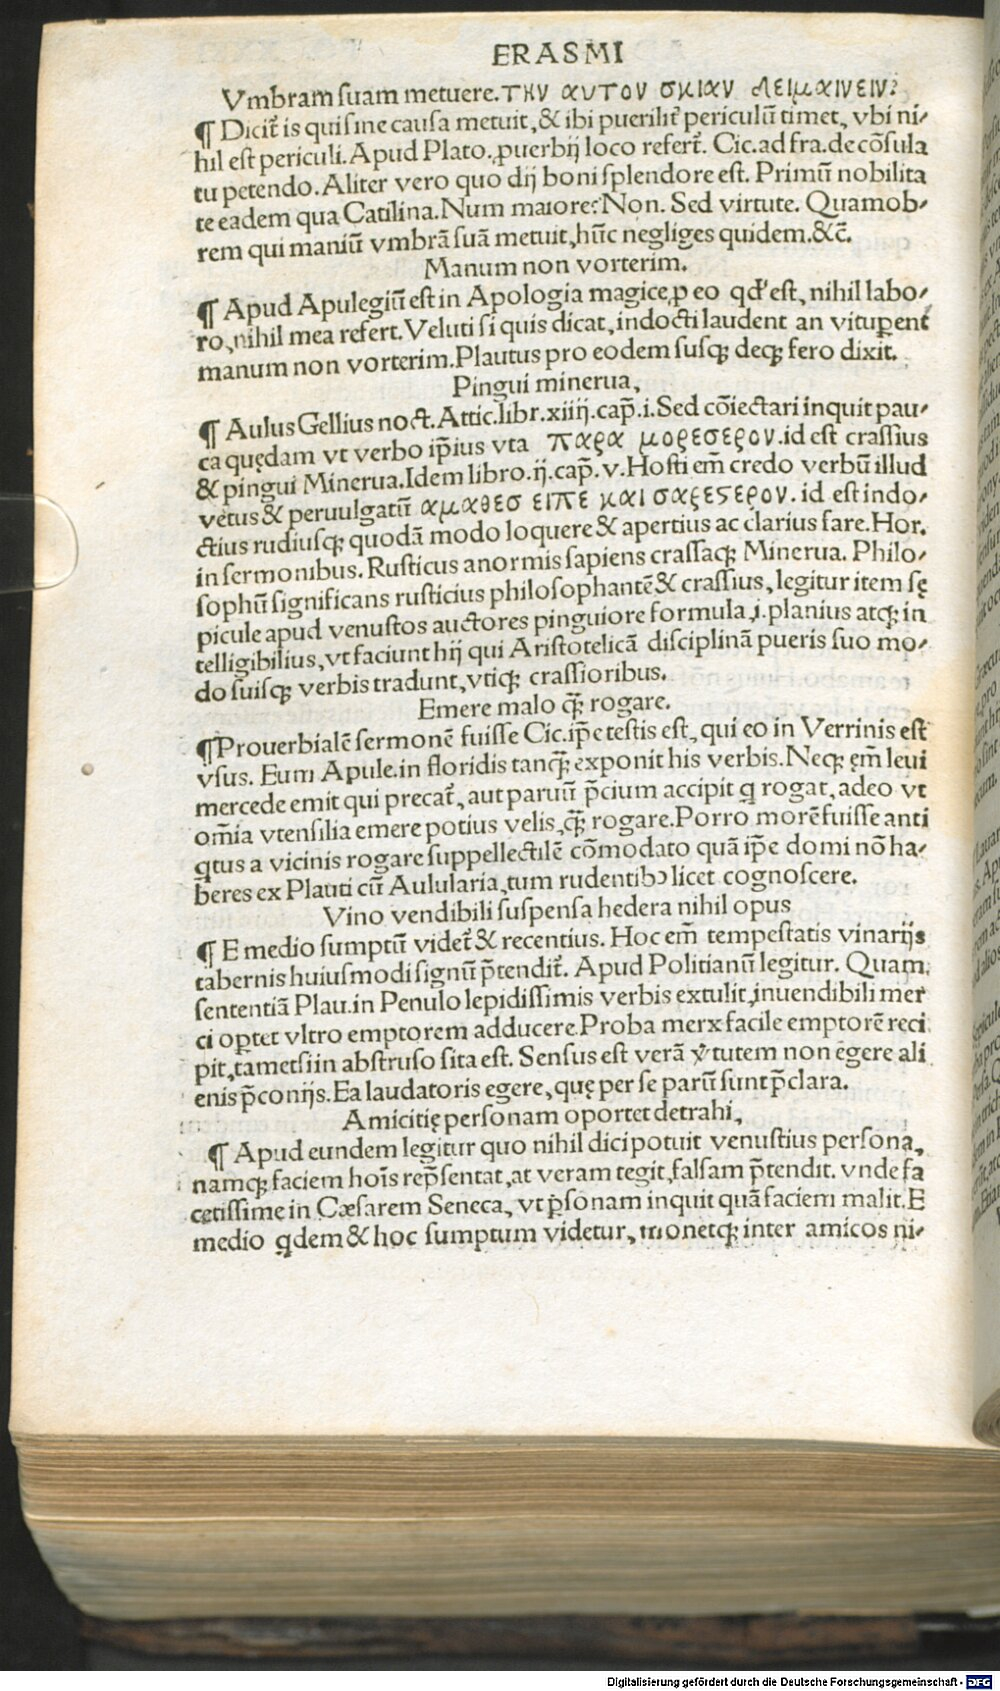 ERASMI
Vmbram suam metuere. την αυτον σκιαν δειμαινειν:
¶ Dicit᷑ is qui sine causa metuit, & ibi puerilit᷑ periculū timet, vbi ni⸗
hil est periculi. Apud Plato. ꝓuerbij loco refert᷑. Cic. ad fra. de cōsula
tu petendo. Aliter vero quo dij boni splendore est. Primū nobilita
te eadem qua Catilina. Num maiore: Non. Sed virtute. Quamob⸗
rem qui maniū vmbrā suā metuit, hūc negliges quidem. &c̄.
Manum non vorterim.
¶ Apud Apulegiū est in Apologia magice, ꝑ eo qd' est, nihil labo⸗
ro, nihil mea refert. Veluti si quis dicat, indocti laudent an vituꝑent
manum non vorterim. Plautus pro eodem susqꝫ deqꝫ fero dixit.
Pingui minerua,
¶ Aulus Gellius noct. Attic. libr. xiiij. cap̄. i. Sed cōiectari inquit pau⸗
ca quędam vt verbo ip̄ius vta παρα μορεσερον. id est crassius
& pingui Minerua. Idem libro. ij. cap̄. v. Hosti em̄ credo verbū illud
vetus & peruulgatū αμαθεσ ειπε και σαφεστερον. id est indo⸗
ctius rudiusqꝫ quodā modo loquere & apertius ac clarius fare. Hor.
in sermonibus. Rusticus anormis sapiens crassaqꝫ Minerua. Philo⸗
sophū significans rusticius philosophantē & crassius, legitur item sę
picule apud venustos auctores pinguiore formula .i. planius atqꝫ in
telligibilius, vt faciunt hij qui Aristotelicā disciplinā pueris suo mo⸗
do suisqꝫ verbis tradunt, vtiqꝫ crassioribus.
Emere malo qꝫ̄ rogare.
¶ Prouerbialē sermonē fuisse Cic. ip̄e testis est, qui eo in Verrinis est
vsus. Eum Apule. in floridis tanqꝫ̄ exponit his verbis. Neqꝫ ęm̄ leui
mercede emit qui precat᷑, aut paruū p̄cium accipit q rogat, adeo vt
om̄ia vtensilia emere potius velis, qꝫ̄ rogare. Porro morē fuisse anti
qtus a vicinis rogare suppellectilē cōmodato quā ip̄e domi nō ha⸗
beres ex Plauti cū Aulularia, tum rudentibꝰ licet cognoscere.
Vino vendibili suspensa hedera nihil opus
¶ E medio sumptū videt᷑ & recentius. Hoc em̄ tempestatis vinarijs
tabernis huiusmodi signū p̄tendit᷑. Apud Politianū legitur. Quam
sententiā Plau. in Penulo lepidissimis verbis extulit, inuendibili mer
ci oꝑtet vltro emptorem adducere. Proba merx facile emptorē reci
pit, tametsi in abstruso sita est. Sensus est verā v̓tutem non egere ali
enis p̄conijs. Ea laudatoris egere, quę per se parū sunt p̄clara.
Amicitię personam oportet detrahi,
¶ Apud eundem legitur quo nihil dici potuit venustius persona,
namqꝫ faciem hoīs rep̄sentat, at veram tegit, falsam p̄tendit. vnde fa
cetissime in Cæsarem Seneca, vt p̱sonam inquit quā faciem malit. E
medio qdem & hoc sumptum videtur, monetqꝫ inter amicos ni⸗
Digitalisierung gefördert durch die Deutsche Forschungsgemeinschaft - DFG